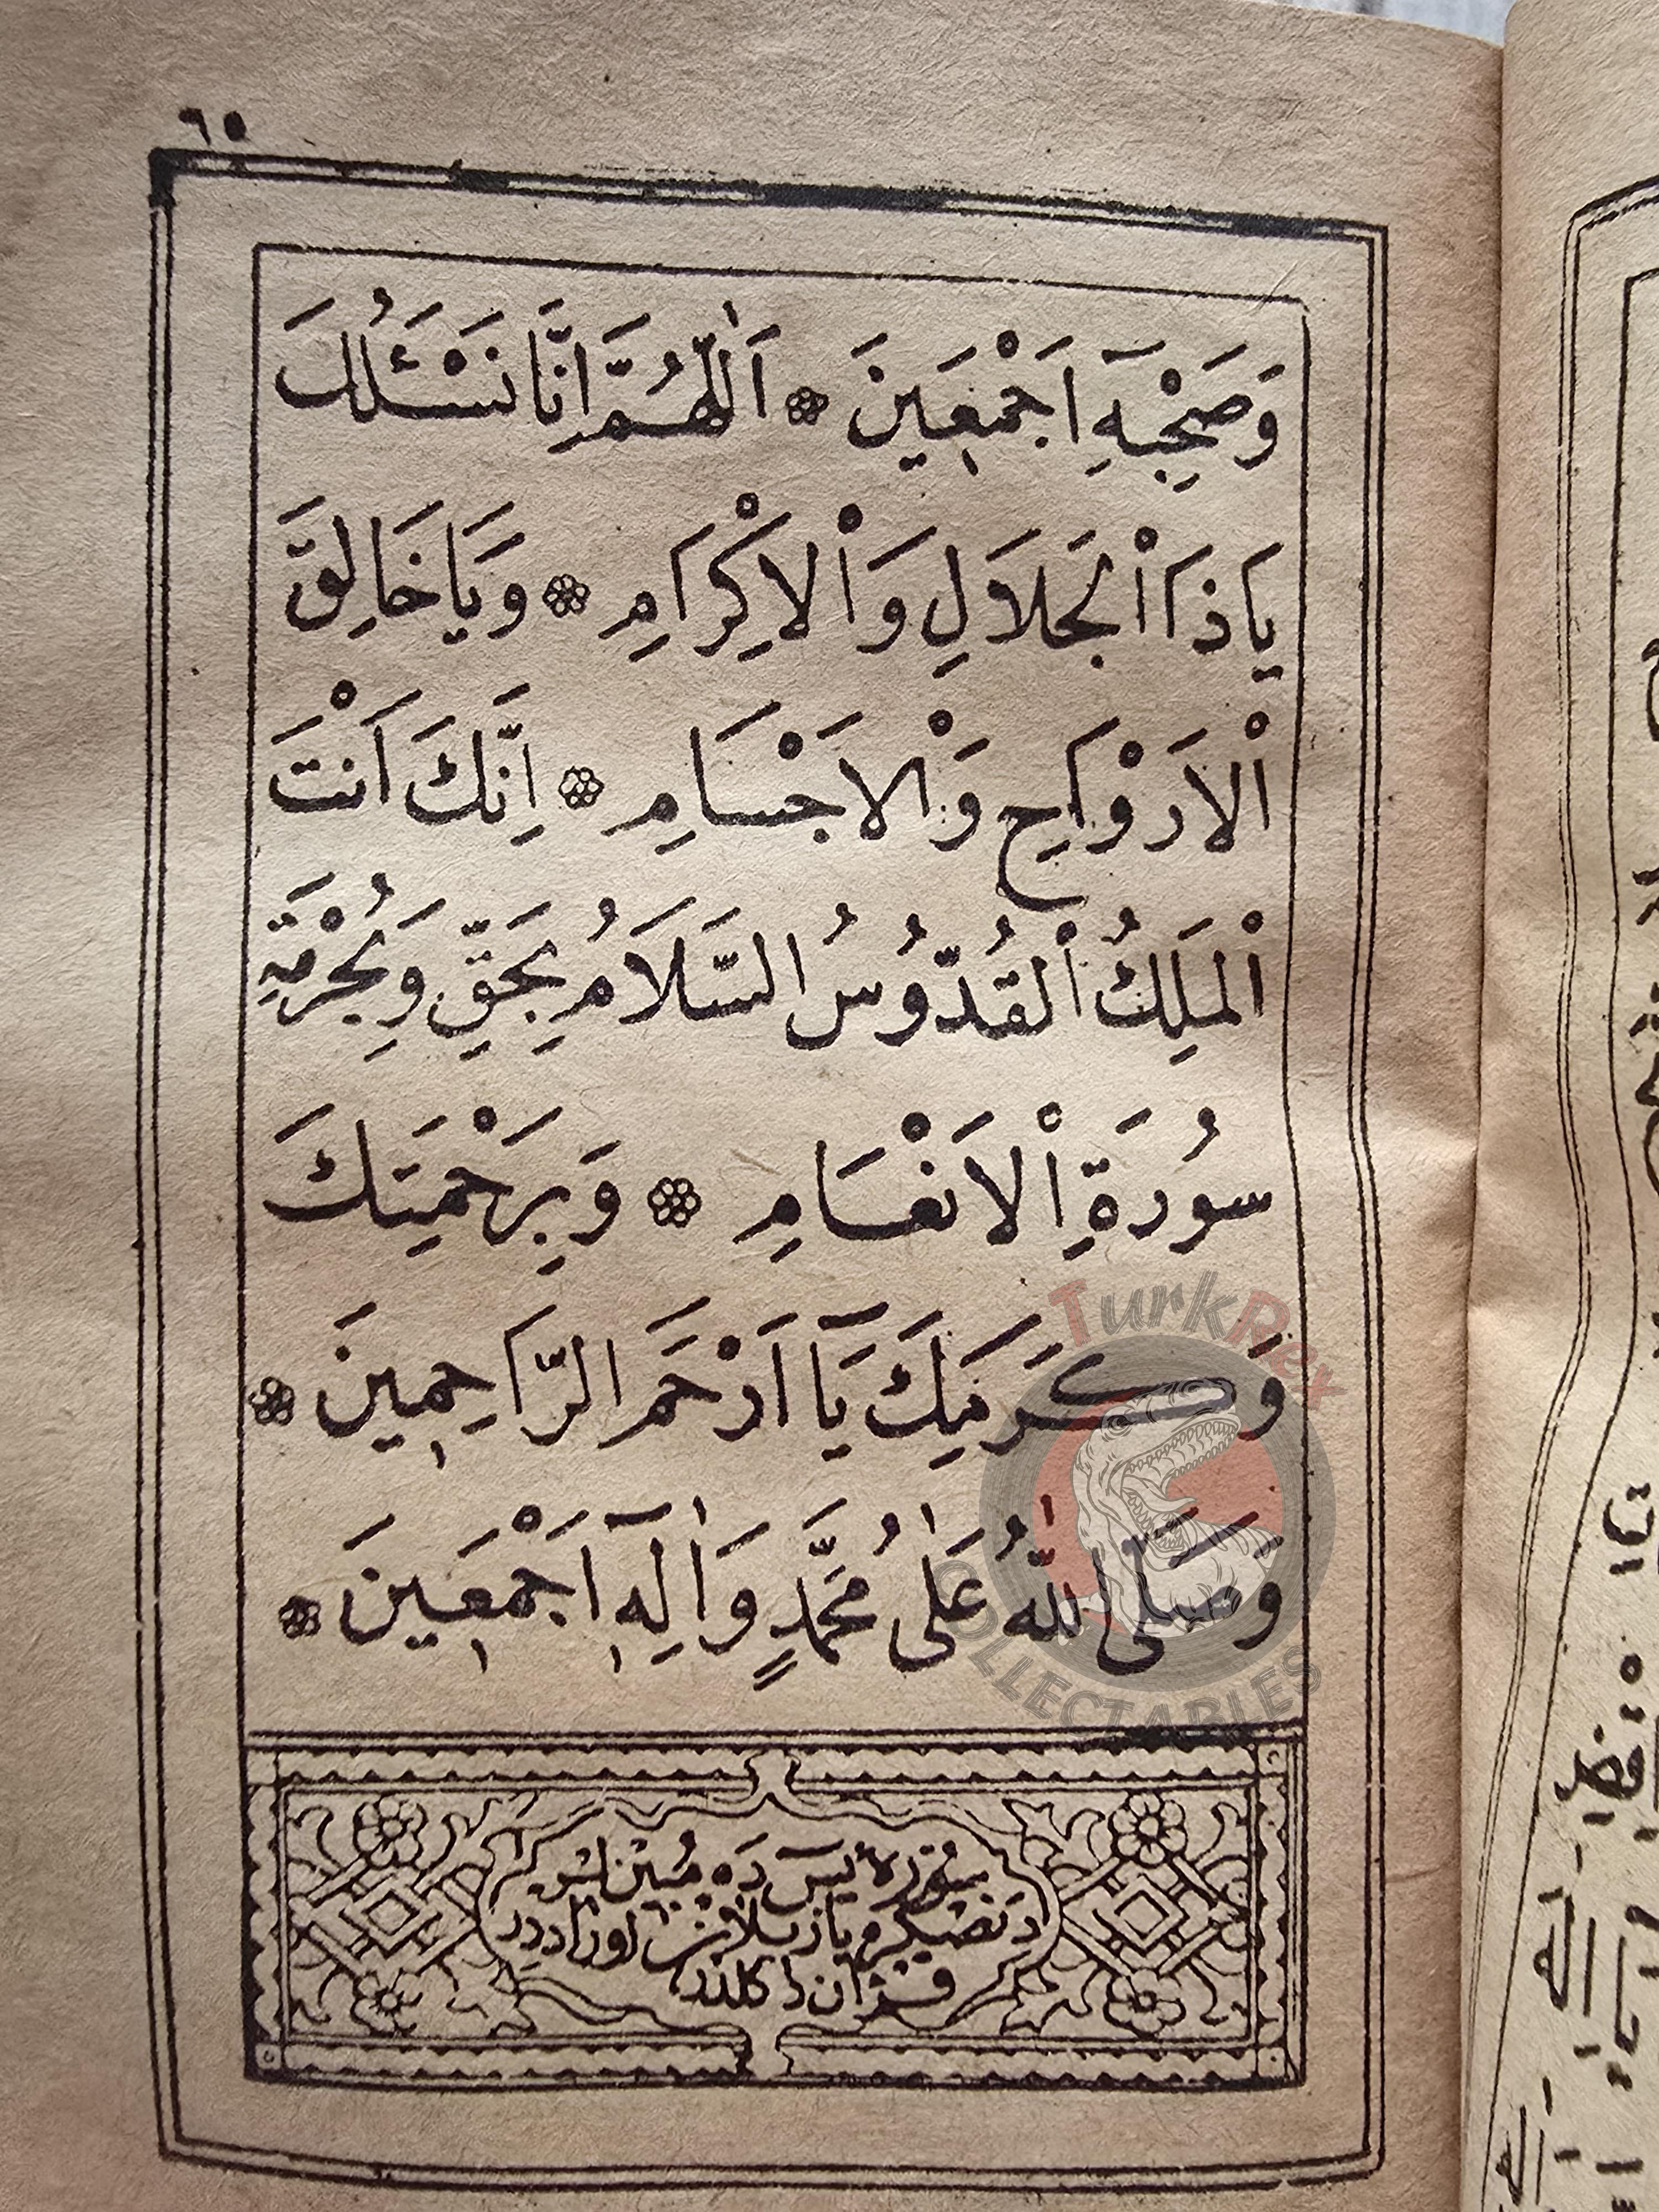 ٦٥
وَصَحْبِهِٓ اَجْمَعٖينَ ۞ اَللّٰهُمَّ اِنَّا نَسْئَلُكَ
يَاذَا اْلجَلَالِ وَاْلاِكْرَامِ ۞ وَيَاخَالِقَ
اْلاَرْوَاحِ وَاْلاَجْسَامِ ۞ اِنَّكَ اَنْتَ
اْلمَلِكُ اْلقُدُّوسُ السَّلَامُ بِحَقِّ وَبِحُرْمَةِ
سُورَةِ اْلاَنْعَامِ ۞ وَبِرَحْمَتِكَ
وَكَرَمِكَ يَٓا اَرْحَمَ الرَّاحِمٖينَ ۞
وَصَلَّى اللّٰهُ عَلٰى مُحَمَّدٍ وَاٰلِهٖٓ اَجْمَعٖينَ ۞
سُورَۀ يٰسٓ دَه مُبٖينْ
قُرْآن
TurkRex
COLLECTABLES